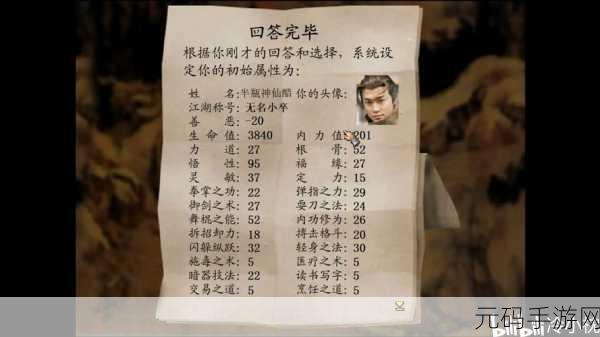 回答完毕
根据你刚才的回答和选择，系统设
定你的初始属性为：
姓 名：半瓶神仙醋 你的头像：
江湖称号：无名小卒
善 恶：-20
生 命 值：3840 内 力 值：201
力 道：27 根 骨：52
悟 性：95 福 缘：27
灵 敏：37 定 力：15
拳掌之功：22 弹指之力：29
御剑之术：27 耍刀之法：24
舞棍之能：52 内功修为：26
拆招卸力：18 搏击格斗：20
闪躲纵跃：32 轻身之法：30
施毒之术：5 医疗之术：5
暗器技法：22 读书写字：5
交易之道：5 烹饪之道：5
元码手游网
bilibili 冷小沈